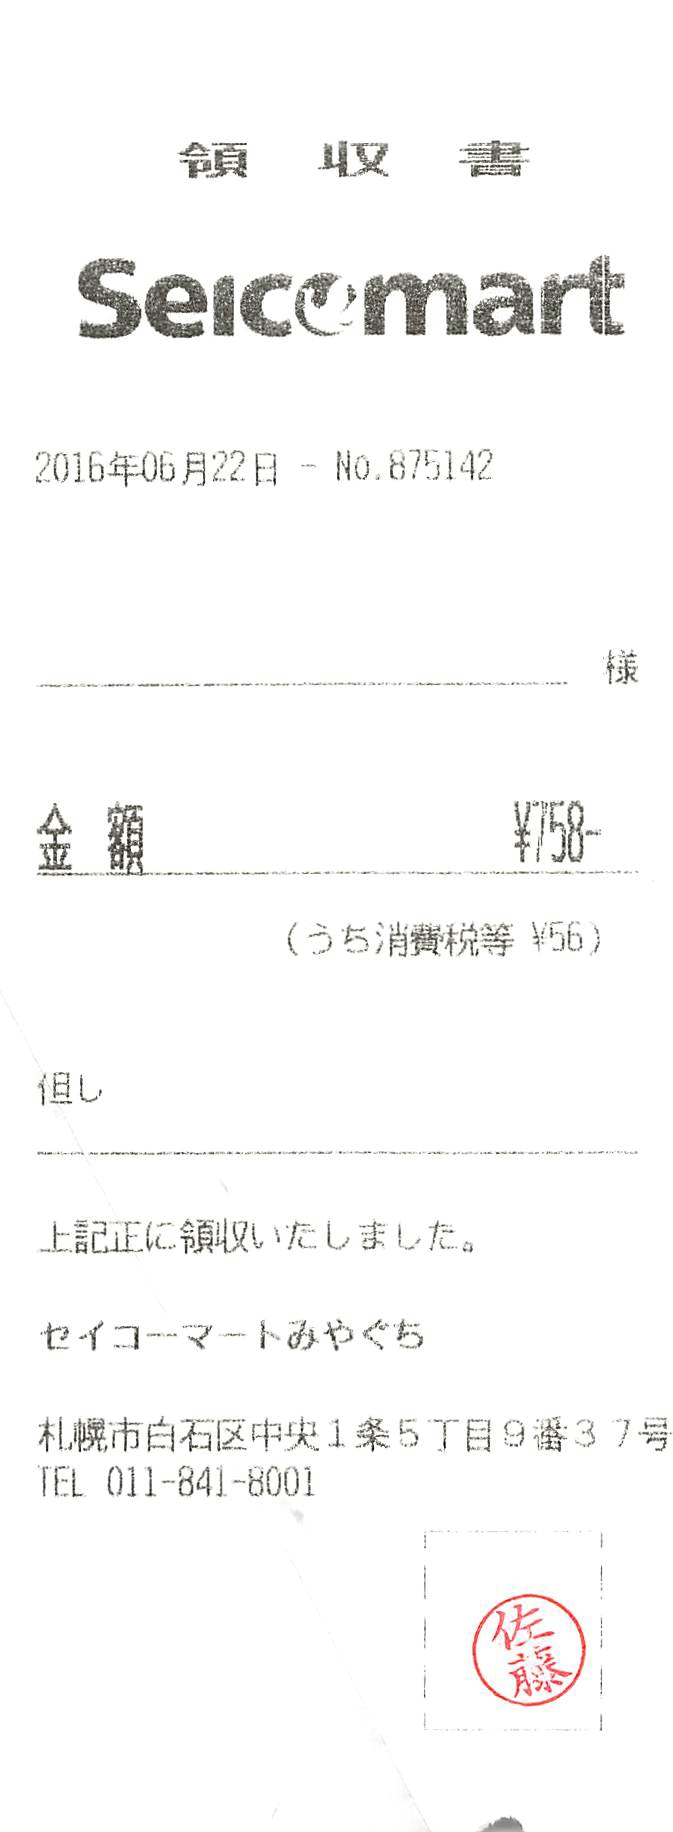 領収書
Seicomart
2016年06月22日 - No.875142
様
金額 ¥758-
(うち消費税等 ¥56)
但し
上記正に領収いたしました。
セイコーマートみやぐち
札幌市白石区中央1条5丁目9番37号
TEL 011-841-8001
佐藤